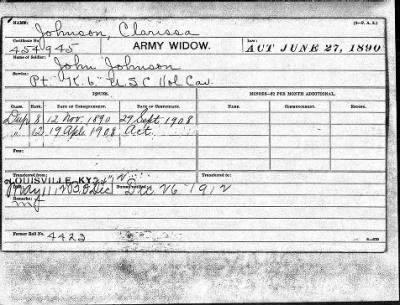 NAME: Johnson, Clarissa (3-P. A. B.)
Certificate No. 454945 ARMY WIDOW. LAW: ACT JUNE 27, 1890
Name of Soldier: John Johnson
Service: Pt. "K. 6" U. S. C. Vol Cav.
ISSUE. MINORS—$2 PER MONTH ADDITIONAL.
CLASS. RATE. DATE OF COMMENCEMENT. DATE OF CERTIFICATE. NAME. COMMENCEMENT. EXPIRATION.
Dup 8 12 Nov. 1890 29 Sept 1908
" 12 19 Apl. 1908 Act.
Fee:
Fee:
Transferred from Transferred to
LOUISVILLE, KY.
Dec. 26 1912
Remarks:
Former Roll No. 4423